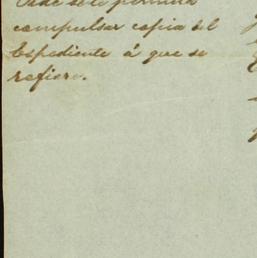 se le permita
compulsar copia del
Espediente á que se
refiere.